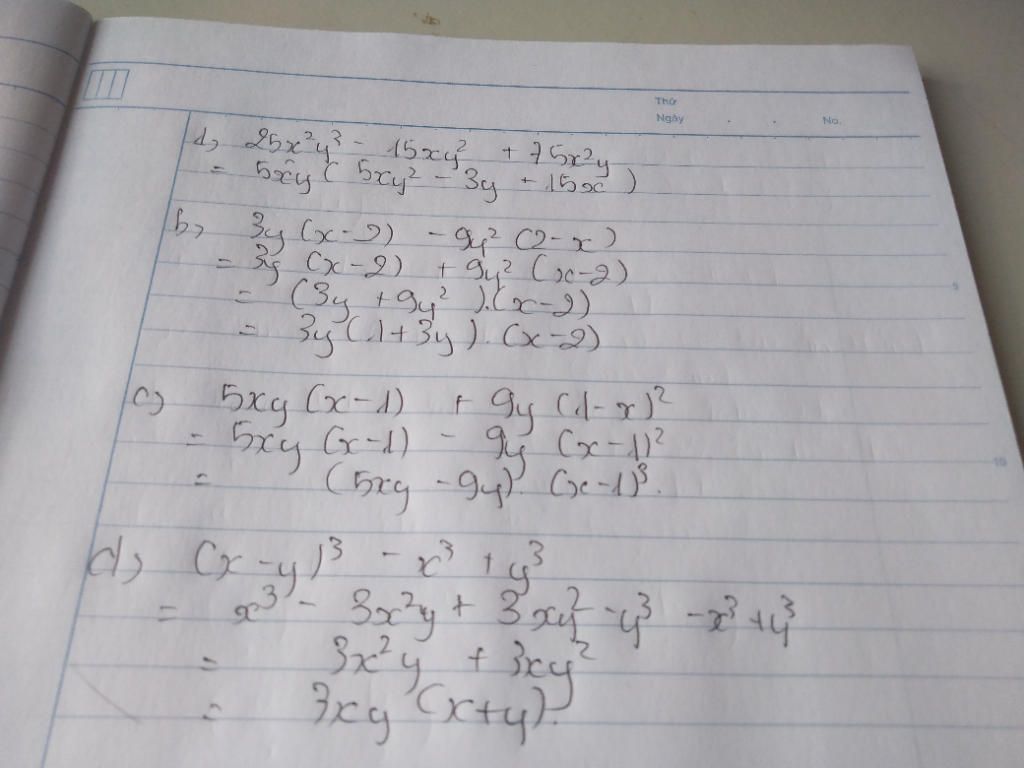 Thứ
Ngày . . No.
a) 25x²y³ - 15xy² + 75x²y
= 5xy ( 5xy² - 3y + 15x )
b) 3y (x-2) - 9y² (2-x)
= 3y (x-2) + 9y² (x-2)
= (3y + 9y²).(x-2)
= 3y(1+3y).(x-2)
c) 5xy (x-1) + 9y (1-x)²
= 5xy (x-1) - 9y (x-1)²
= (5xy - 9y).(x-1)³.
d) (x-y)³ - x³ + y³
= x³ - 3x²y + 3xy² - y³ - x³ + y³
= 3x²y + 3xy²
= 3xy (x+y).
5
10